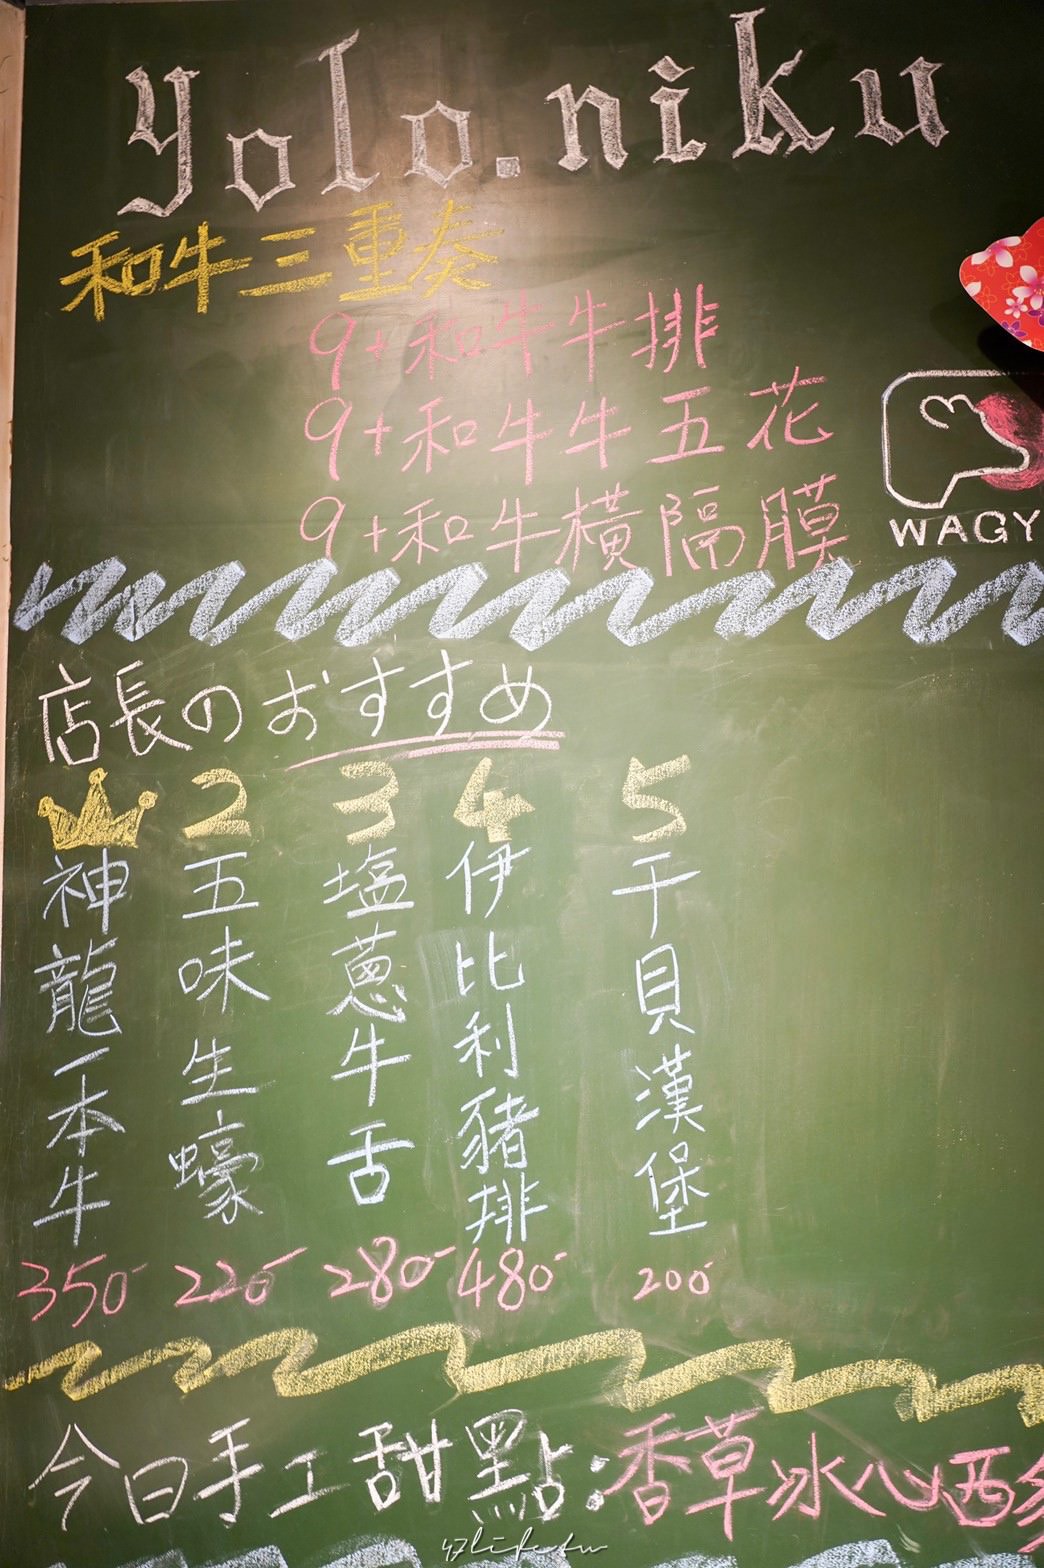 Yolo.niku
和牛三重奏
9+和牛牛排
9+和牛牛五花
9+和牛橫隔膜
WAGY
店長のおすすめ
2 3 4 5
神龍一本牛 350
五味生蠔 220
塩蔥牛舌 280
伊比利豬排 480
干貝漢堡 200
今日手工甜點:香草冰心西